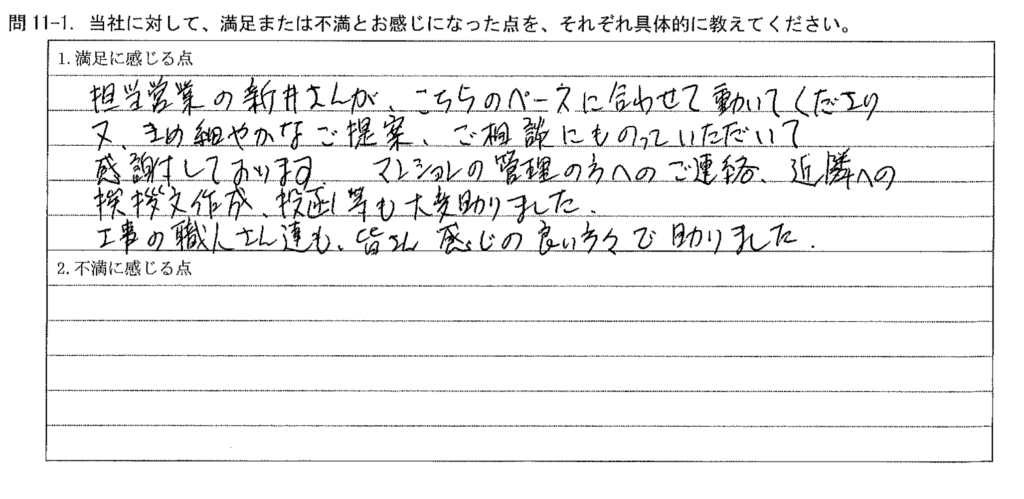 問11-1. 当社に対して、満足または不満とお感じになった点を、それぞれ具体的に教えてください。
1.満足に感じる点
担当営業の新井さんが、こちらのペースに合わせて動いてくださり
又、きめ細やかなご提案、ご相談にものっていただいて
感謝しております。 マンションの管理の方へのご連絡、近隣への
挨拶文作成、投函等も大変助りました。
工事の職人さん達も、皆さん感じの良い方々で助りました.
2.不満に感じる点